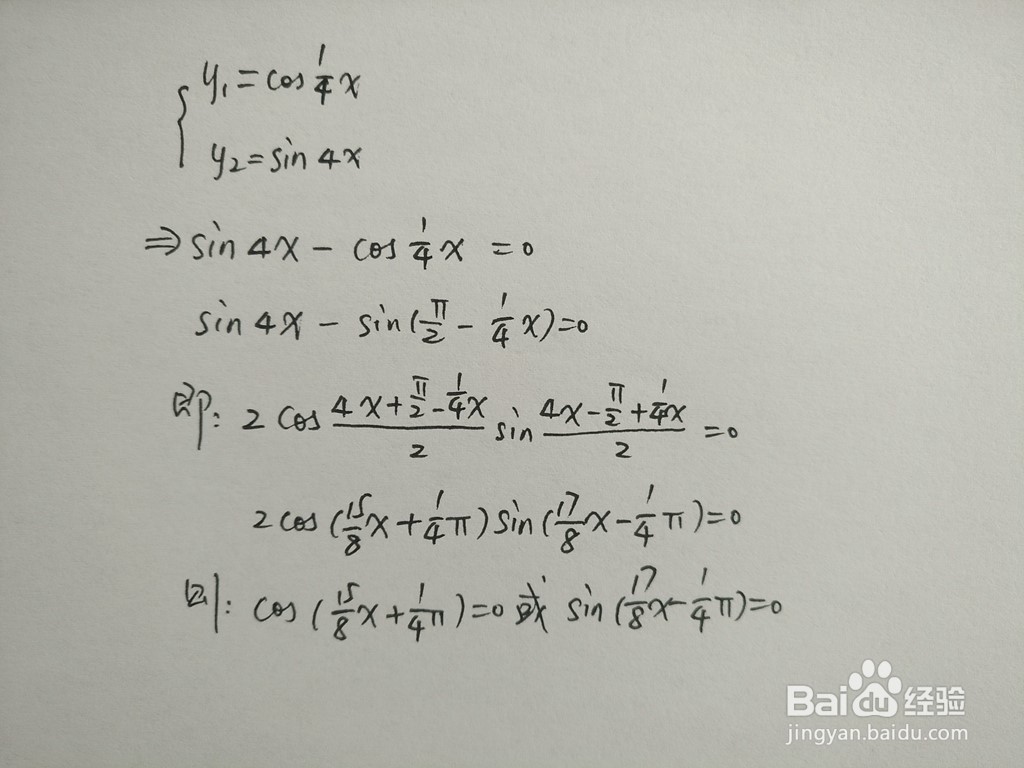 y₁=cos 1/4 x
y₂=sin 4x
⇒ sin 4x − cos 1/4 x = 0
sin 4x − sin(π/2 − 1/4 x)=0
即: 2 cos (4x+π/2−1/4x)/2 sin (4x−π/2+1/4x)/2 =0
2 cos (15/8 x + 1/4 π) sin (17/8 x − 1/4 π)=0
则: cos (15/8 x + 1/4 π)=0 或 sin (17/8 x − 1/4 π)=0
Bai du 经验
jingyan.baidu.com